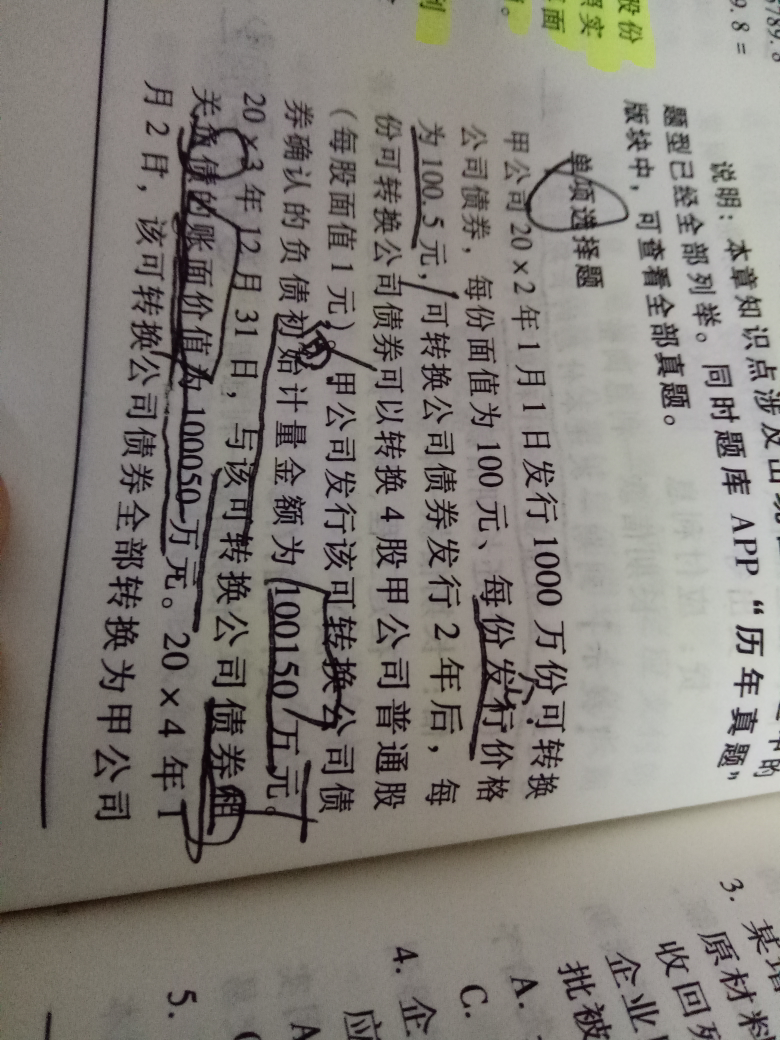 股份
面
789.8
9.8 =
说明：本章知识点涉及
题型已经全部列举。同时题库 APP“历年真题”
版块中，可查看全部真题。
单项选择题
甲公司 20×2 年 1 月 1 日发行 1000 万份可转换
公司债券，每份面值为 100 元、每份发行价格
为 100.5 元，可转换公司债券发行 2 年后，每
份可转换公司债券可以转换 4 股甲公司普通股
（每股面值 1 元）。甲公司发行该可转换公司债
券确认的负债初始计量金额为 100150 万元。
20×3 年 12 月 31 日，与该可转换公司债券相
关负债的账面价值为 100050 万元。20×4 年 1
月 2 日，该可转换公司债券全部转换为甲公司
3. 某
原材料
收回
企业
批被
A.
C.
4. 企
应
A
5.